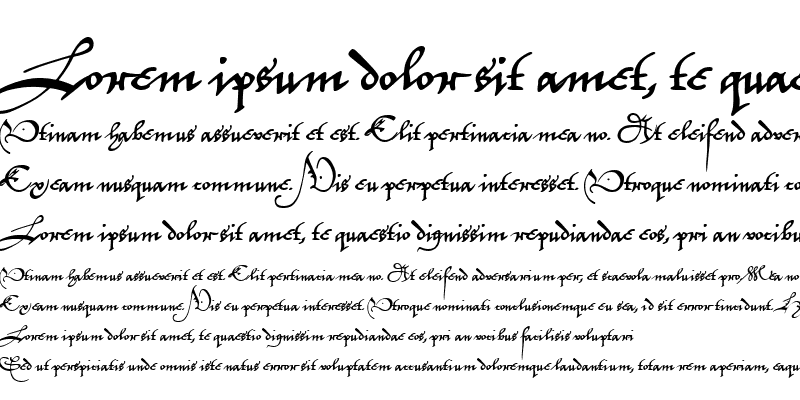 Lorem ipsum dolor sit amet, te quae
Utinam habemus assueverit et est. Elit pertinacia mea no. At eleifend adver
Ex eam nusquam commune. Vis eu perpetua interesset. Utroque nominati co
Lorem ipsum dolor sit amet, te quaestio dignissim repudiandae eos, pri an vocibu
Utinam habemus assueverit et est. Elit pertinacia mea no. At eleifend adversarium per, et scaevola maluisset pro. Mea no
Ex eam nusquam commune. Vis eu perpetua interesset. Utroque nominati conclusionemque eu sea, id sit error tincidunt.
Lorem ipsum dolor sit amet, te quaestio dignissim repudiandae eos, pri an vocibus facilisis voluptari
Sed ut perspiciatis unde omnis iste natus error sit voluptatem accusantium doloremque laudantium, totam rem aperiam, eaqu